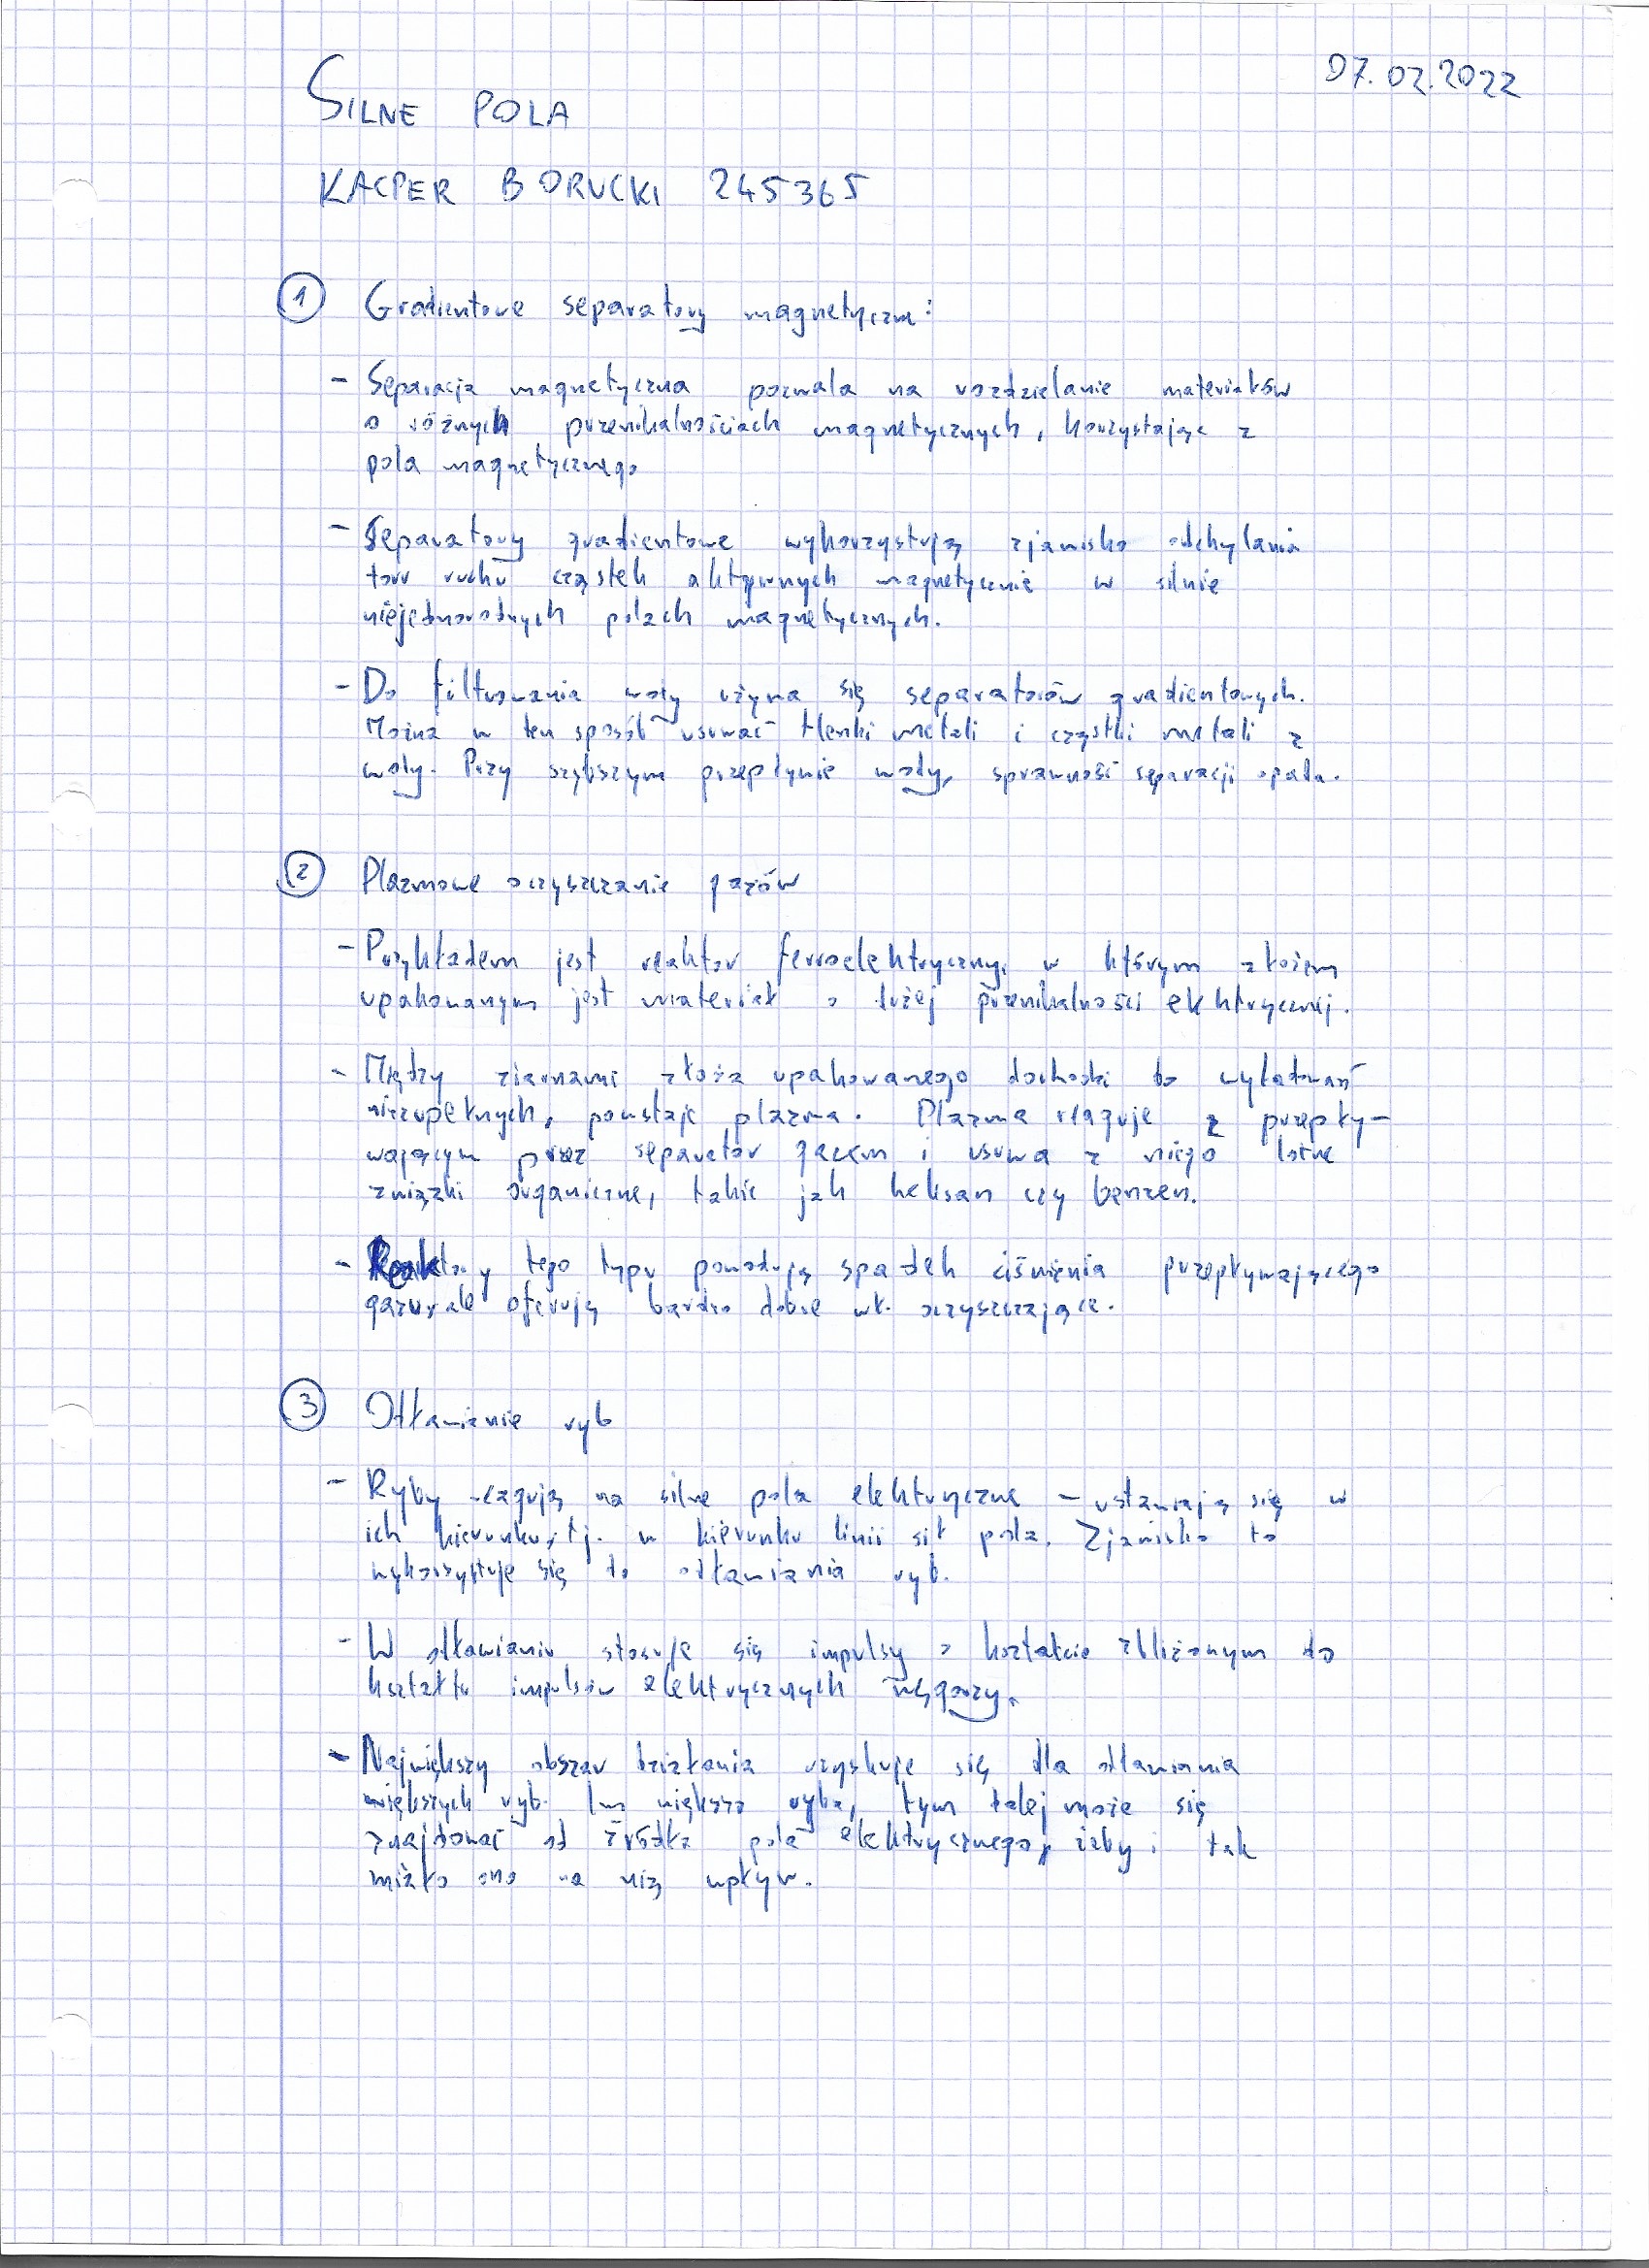 07.02.2022
SILNE POLA
KACPER BORUCKI 245365
1 Gradientowe separatory magnetyczne:
- Separacja magnetyczna pozwala na rozdzielanie materiałów
o różnych przenikalnościach magnetycznych, korzystając z
pola magnetycznego
- Separatory gradientowe wykorzystują zjawisko odchylania
toru ruchu cząstek aktywnych magnetycznie w silnie
niejednorodnych polach magnetycznych.
- Do filtrowania wody używa się separatorów gradientowych.
Można w ten sposób usuwać tlenki metali i cząstki metali z
wody. Przy szybszym przepływie wody, sprawność separacji spada.
2 Plazmowe oczyszczanie gazów
- Przykładem jest reaktor ferroelektryczny, w którym złożem
upakowanym jest materiał o dużej przenikalności elektrycznej.
- Między ziarnami złoża upakowanego dochodzi do wyładowań
niezupełnych, powstaje plazma. Plazma reaguje z przepły-
wającym przez separator gazem i usuwa z niego lotne
związki organiczne, takie jak heksan czy benzen.
- Reaktory tego typu powodują spadek ciśnienia przepływającego
gazu, ale oferują bardzo dobre wł. oczyszczające.
3 Odławianie ryb
- Ryby reagują na silne pola elektryczne - ustawiają się w
ich kierunku, tj. w kierunku linii sił pola. Zjawisko to
wykorzystuje się do odławiania ryb.
- W odławianiu stosuje się impulsy o kształcie zbliżonym do
kształtu impulsów elektrycznych węgorzy.
- Największy obszar działania uzyskuje się dla odławiania
większych ryb. Im większa ryba, tym dalej może się
znajdować od źródła pola elektrycznego, żeby i tak
miało ono na nią wpływ.